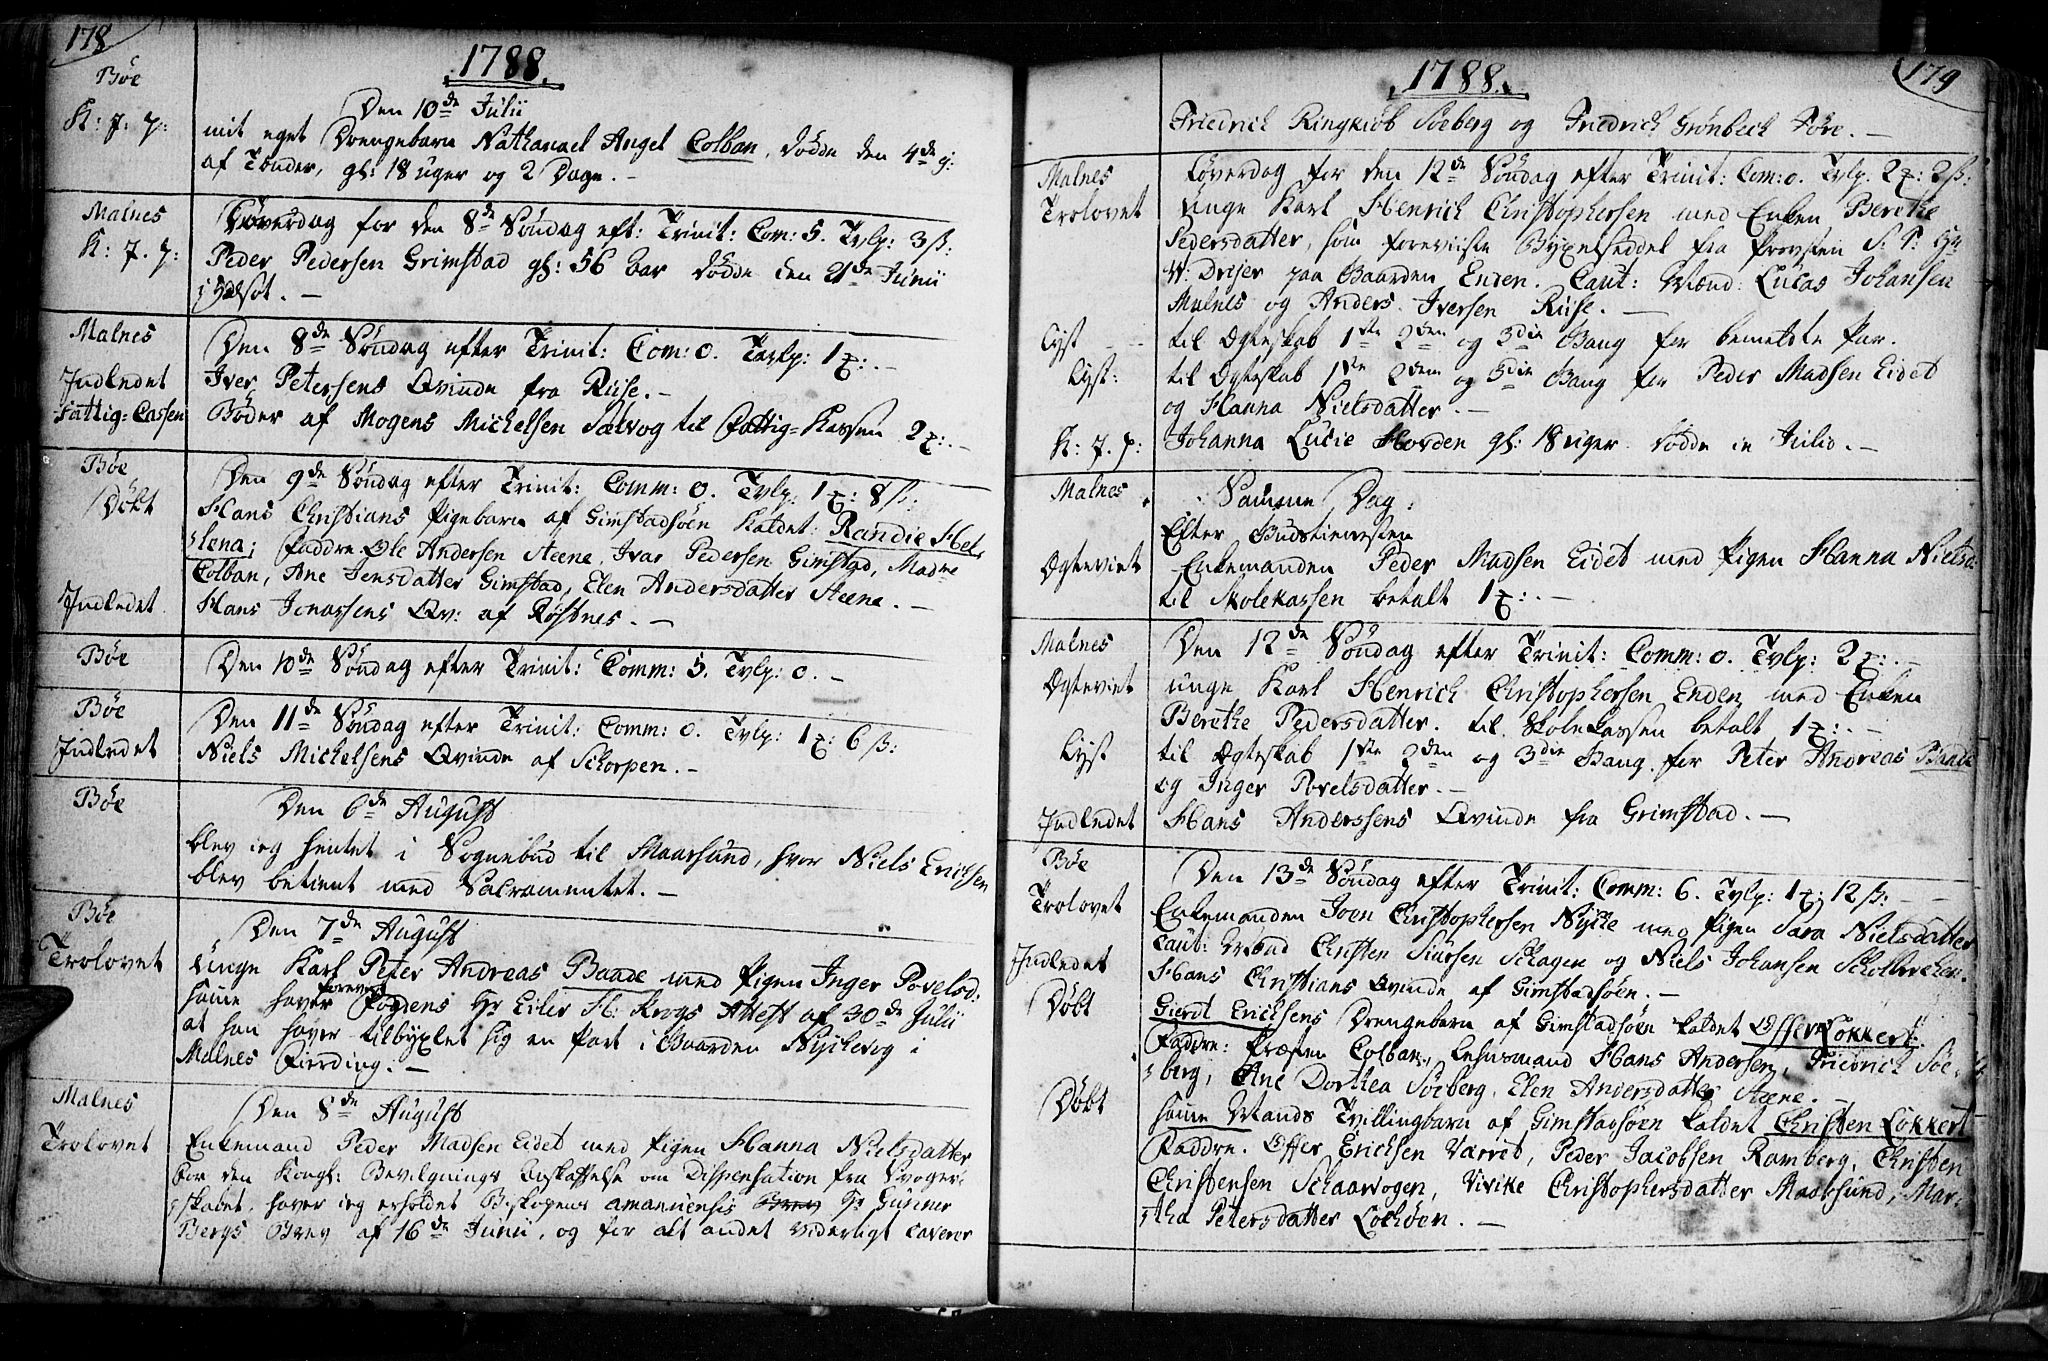 178
1788.
Bøe
K: J. P:
Den 10de Julii
mit eget Drengebarn Nathanael Angel Colban, døde den 4de
af Tænder, gl: 18 uger og 2 Dage. -
Malnes
K: J. P:
Løverdag for den 8de Søndag eft: Trinit: Com: 5. Tvlp: 3 ß:
Peder Pedersen Grimstad gl: 56 Aar døde den 21de Junii
Malnes
Den 8de Søndag efter Trinit: Com: 0. Tavlp: 1 :. -
Indledet
Iver Petersens Qvinde fra Riise. -
Fattig-Cassen
Bøder af Mogens Michelsen Sælvog til Fattig-Kassen 2 :. -
Bøe
Den 9de Søndag efter Trinit: Comm: 0. Tvlp: 1 : 8 ß:
Døbt
Hans Christians Pigebarn af Gimstadsøen kaldet: Randie Hel-
lena; Faddre Ole Andersen Steene, Ivar Pedersen Gimstad, Madme
Colban, Ane Jensdatter Gimstad, Elen Andersdatter Steene. -
Indledet
Hans Jonassens Qv: af Røstnes. -
Bøe
Den 10de Søndag efter Trinit: Comm: 5. Tvlp: 0. -
Bøe
Den 11de Søndag efter Trinit: Comm: 0. Tvlp: 1 : 6 ß:
Indledet
Niels Michelsens Qvinde af Skorpen. -
Bøe
Den 6de August
blev ieg hentet i Sognebud til Maarsund, hvor Niels Ericksen
blev betient med Sacramentet. -
Bøe
Den 7de August
Trolovet
Unge Karl Peter Andreas Baade med Pigen Inger Povelsd:
samme haver foreviist Hr Eiler H: Krogs Attest af 30de Julii
at han haver tilbyxlet sig en Part i Gaarden Nyckevog i
Malnes Fierding. -
Malnes
Den 8de August
Trolovet
Enkemand Peder Madsen Eidet med Pigen Hanna Nielsdatter
For den Kongl: Bevilgnings Anskaffelse om Dispensation fra Svoger-
skabet, haver ieg erholdet Biskopens amanuensis Hr Gunner
Bergs Brev af 16de Junii, og for alt andet viderligt caverer
179
1788.
Friedrich Ringkiøb Søeberg og Friedrich Grønbech Føre. -
Malnes
Løverdag for den 12de Søndag efter Trinit: Com: 0. Tvlp. 2 : 2 ß:
Trolovet
unge Karl Henrich Christophersen med Enken Berethe
Pedersdatter, som foreviiste Byxelseddel fra Provsten S: T: Hr
W: Drejer paa Gaarden Enden. Caut: Mænd: Lucas Johansen
Malnes og Anders Iversen Riise. -
Lyst - -
til Ægteskab 1ste 2den og 3die Gang for bemeldte Par.
Lyst:
til Ægteskab 1ste 2den og 3die Gang for Peder Madsen Eidet
og Hanna Nielsdatter. -
K: J. P:
Johanna Lucie Horden gl: 18 uger døde in Julio. -
Malnes
Samme Dag:
Efter Gudstienesten
Ægteviet
Enkemanden Peder Madsen Eidet med Pigen Hanna Nielsd:
til Skolekassen betalt 1 :. -
Malnes
Den 12de Søndag efter Trinit: Comm: 0. Tvlp: 2 :. -
Ægteviet
unge Karl Henrich Christophersen Enden med Enken
Berethe Pedersdatter. til Skolekassen betalt 1 :. -
Lyst
til Ægteskab 1ste 2den og 3die Gang for Peter Andreas Baade
og Inger Povelsdatter. -
Indledet
Hans Anderssens Qvinde fra Grimstad. -
Bøe
Den 13de Søndag efter Trinit: Comm: 6. Tvlp: 1 : 12 ß: - -
Trolovet
Enkemanden Joen Christophersen Nycke med Pigen Sara Nielsdatter
Caut: Mænd Christen Siursen Skagen og Niels Johansen
Indledet
Hans Christians Qvinde af Gimstadsøen. -
Døbt
Gierdt Ericksens Drengebarn af Gimstadsøen kaldet Offer Lokkert:
Faddre: Præsten Colban, Lehnsmand Hans Andersen, Friedrich Søe-
berg, Ane Dorthea Søeberg, Elen Andersdatter Steene. -
Døbt
samme Mands Tvillingbarn af Gimstadsøen kaldet Christen Lokkert
Faddre. Offer Ericksen Varret, Peder Jacobsen Ramberg, Christen
Christensen Skaarvogen, Vivike Christophersdatter Maarsund, Mar-
tha Petersdatter Lochøen. -